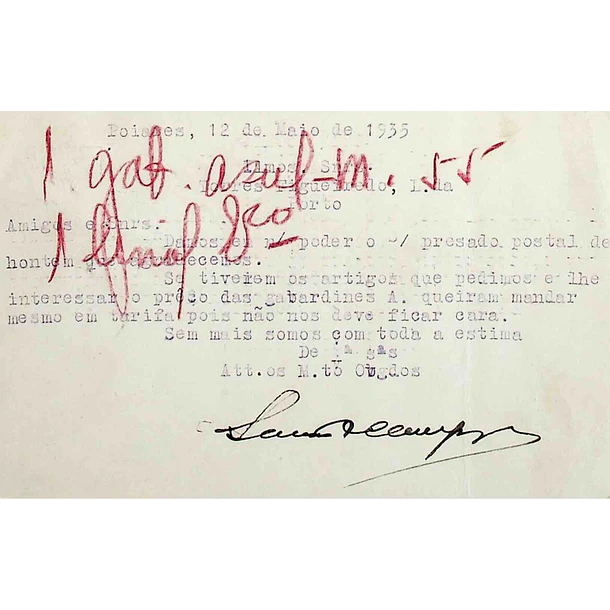 Poiares, 12 de Maio de 1935
1 gab. azul-m. 55
Ilmos. Snrs.
Figueiredo, L.da
Porto
1
Amigos e Snrs.
poder o s/ presado postal de
hontem que agradecemos.
Se tiverem os artigos que pedimos e lhe
interessar o preço das gabardines A. queiram mandar
mesmo em tarifa pois não nos deve ficar cara.
Sem mais somos com toda a estima
De
Att.os M.to Obgdos